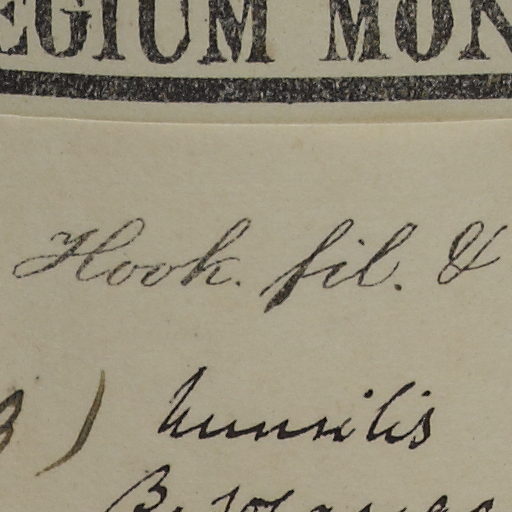 EGIUM MON
Hook. fil. &
) humilis